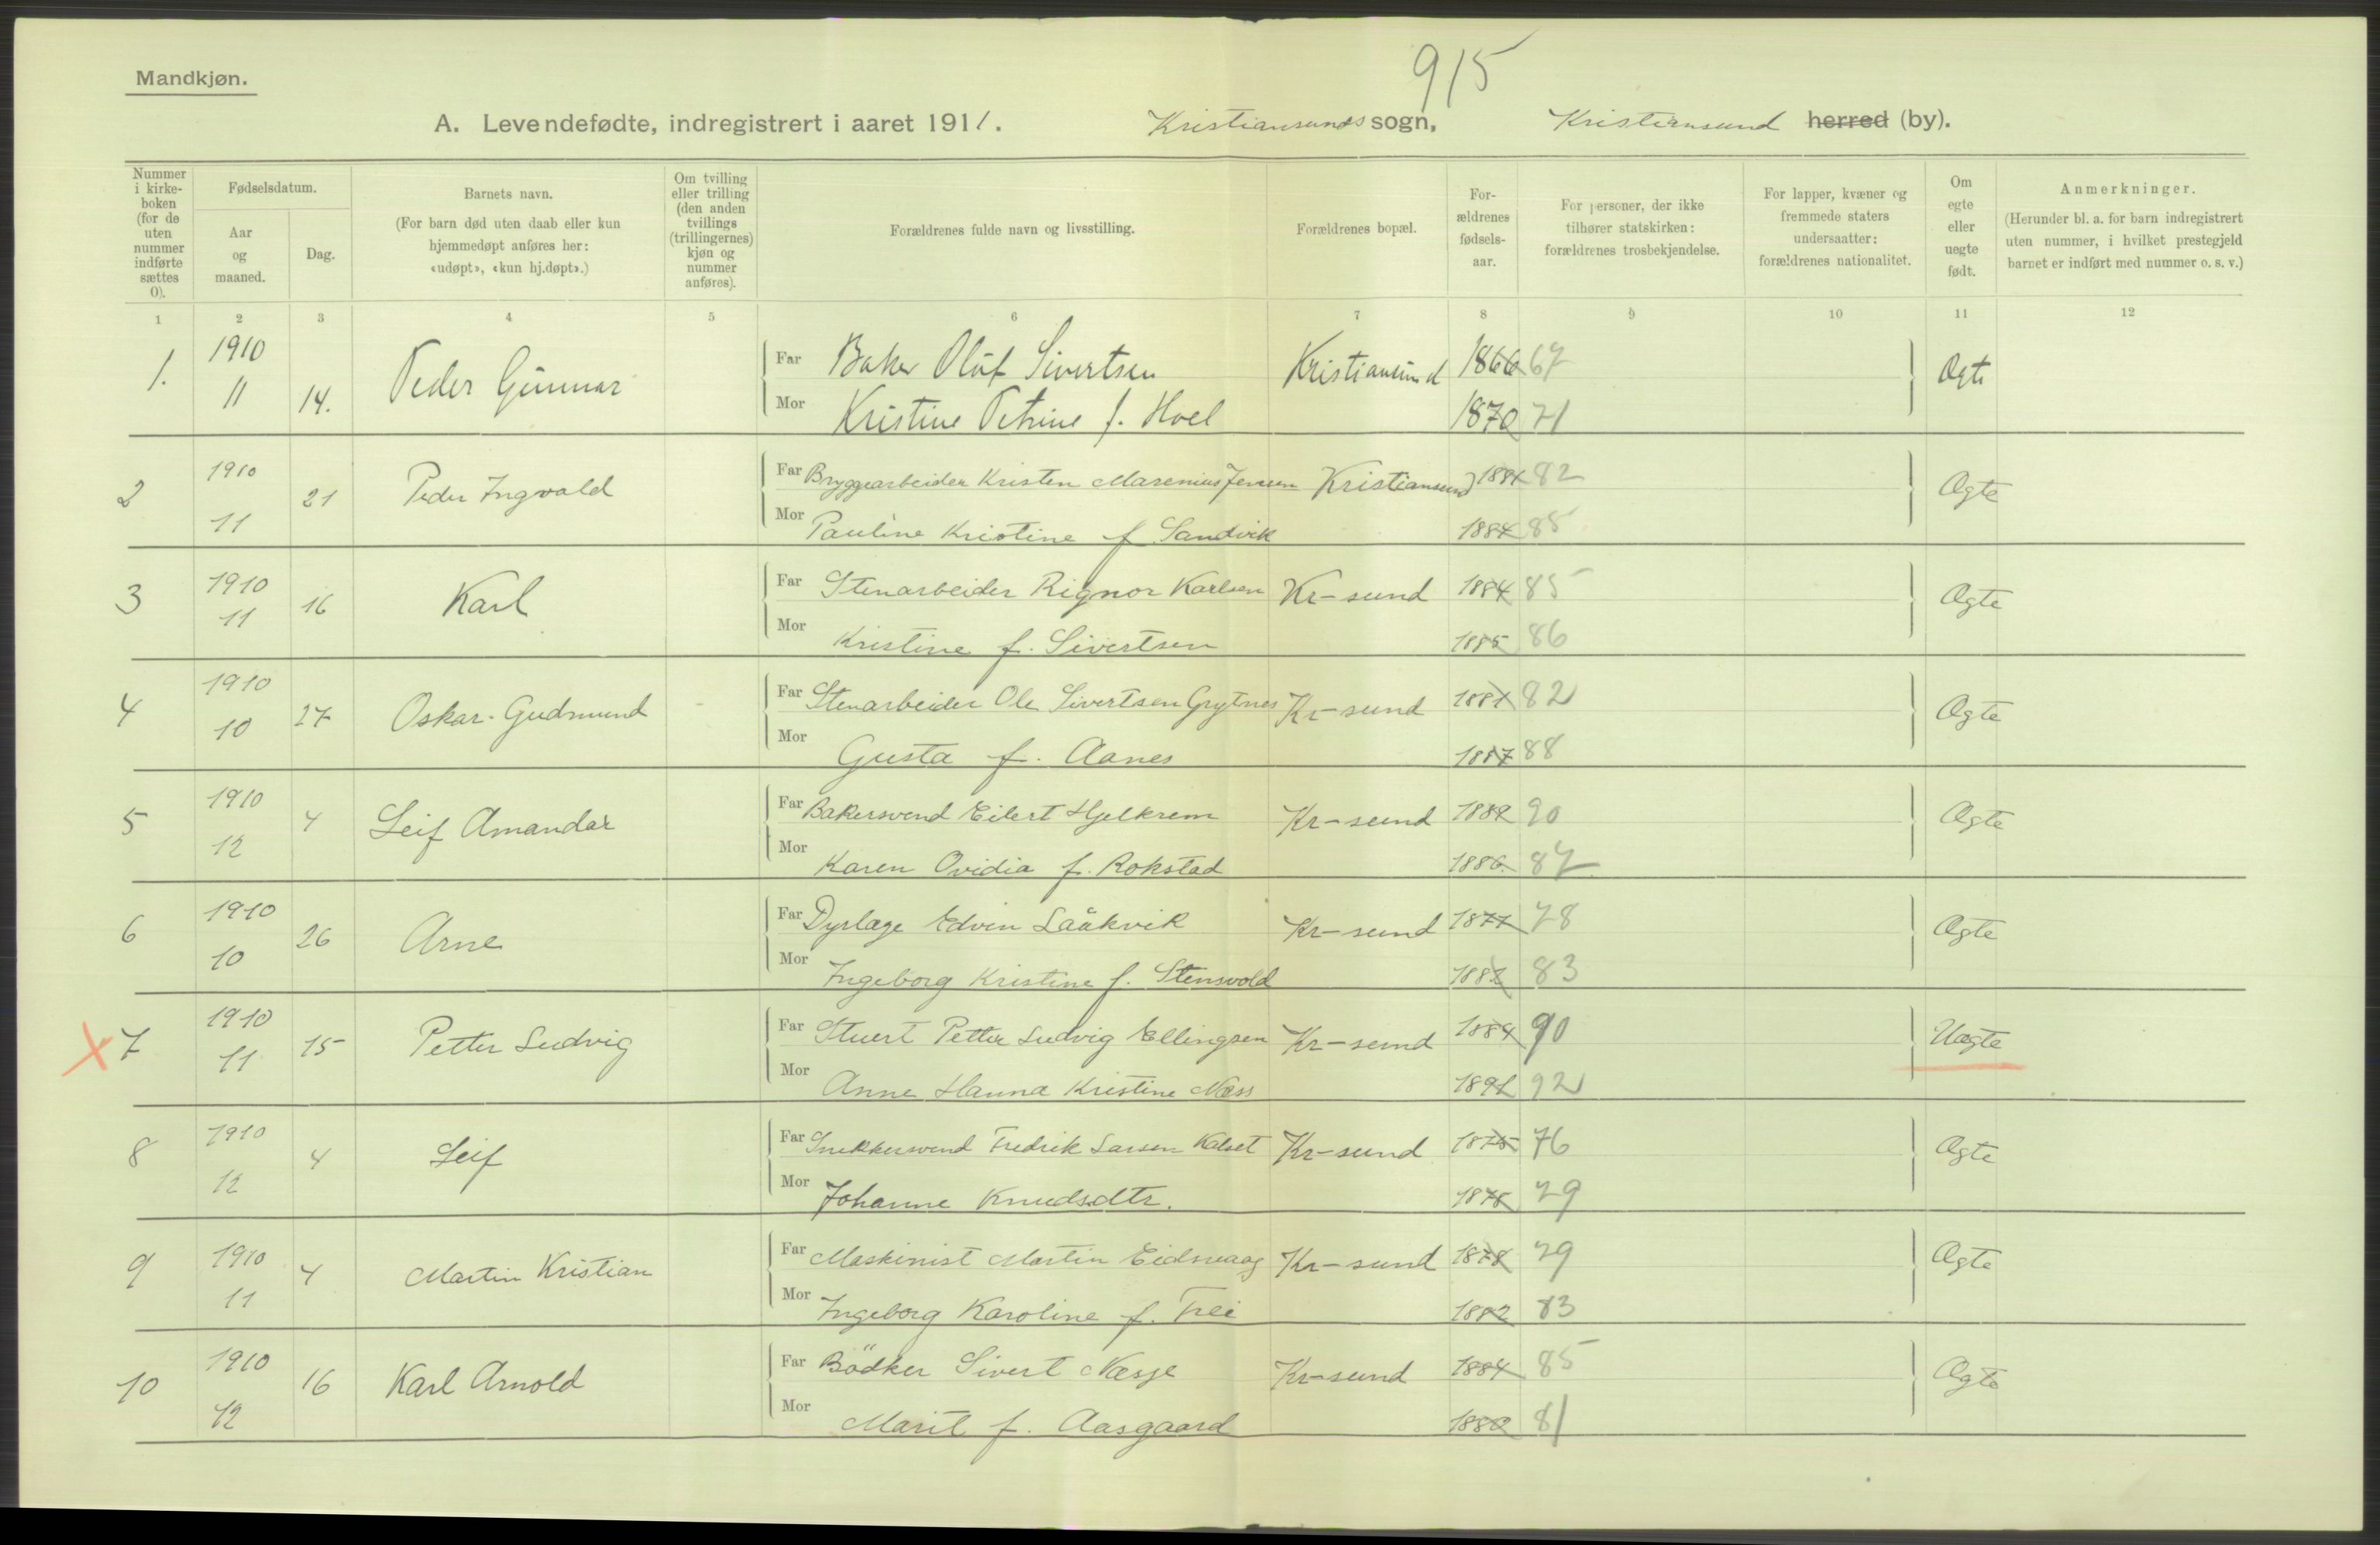 915
Mandkjøn.
A. Levendefødte, indregistrert i aaret 1911. Kristiansunds sogn, Kristiansund herred (by).
Nummer i kirke-boken (for de uten nummer indførte sættes 0).
Fødselsdatum.
Aar og maaned.
Dag.
Barnets navn.
(For barn død uten daab eller kun hjemmedøpt anføres her: «udøpt», «kun hj.døpt».)
Om tvilling eller trilling (den anden tvillings (trillingernes) kjøn og nummer anføres).
Forældrenes fulde navn og livsstilling.
Forældrenes bopæl.
For-ældrenes fødsels-aar.
For personer, der ikke tilhører statskirken: forældrenes trosbekjendelse.
For lapper, kvæner og fremmede staters undersaatter: forældrenes nationalitet.
Om egte eller uegte født.
Anmerkninger.
(Herunder bl. a. for barn indregistrert uten nummer, i hvilket prestegjeld barnet er indført med nummer o. s. v.)
1 2 3 4 5 6 7 8 9 10 11 12
1. 1910 11 14. Peder Gunnar Far Baker Oluf Sivertsen Kristiansund 1866 67 Ægte
Mor Kristine Petrine f. Hoel 1870 71
2 1910 11 21 Peder Ingvald Far Bryggearbeider Kristen Marenius Jensen Kristiansund 1881 82 Ægte
Mor Pauline Kristine f Sandvik 1884 85
3 1910 11 16 Karl Far Stenarbeider Rignor Karlsen Kr-sund 1884 85 Ægte
Mor Kristine f. Sivertsen 1885 86
4 1910 10 27 Oskar Gudmund Far Stenarbeider Ole Sivertsen Grytnes Kr-sund 1881 82 Ægte
Mor Gusta f. Aanes 1887 88
5 1910 12 4 Leif Amandar Far Bakersvend Eilert Hjelkrem Kr-sund 1889 90 Ægte
Mor Karen Ovidia f. Rokstad 1886 87
6 1910 10 26 Arne Far Dyrlæge Edvin Laákvik Kr-sund 1877 78 Ægte
Mor Ingeborg Kristine f. Stensvold 1882 83
X 7 1910 11 15 Petter Ludvig Far Stuert Petter Ludvig Ellingsen Kr-sund 1889 90 Uægte
Mor Anne Hanna Kristine Næss 1891 92
8 1910 12 4 Leif Far Snekkersvend Fredrik Larsen Kalset Kr-sund 1875 76 Ægte
Mor Johanne Knudsdtr. 1878 79
9 1910 11 4 Martin Kristian Far Maskinist Martin Eidsvaag Kr-sund 1878 79 Ægte
Mor Ingeborg Karoline f. Frei 1882 83
10 1910 12 16 Karl Arnold Far Bödker Sivert Næsje Kr-sund 1884 85 Ægte
Mor Marit f. Aasgaard 1880 81